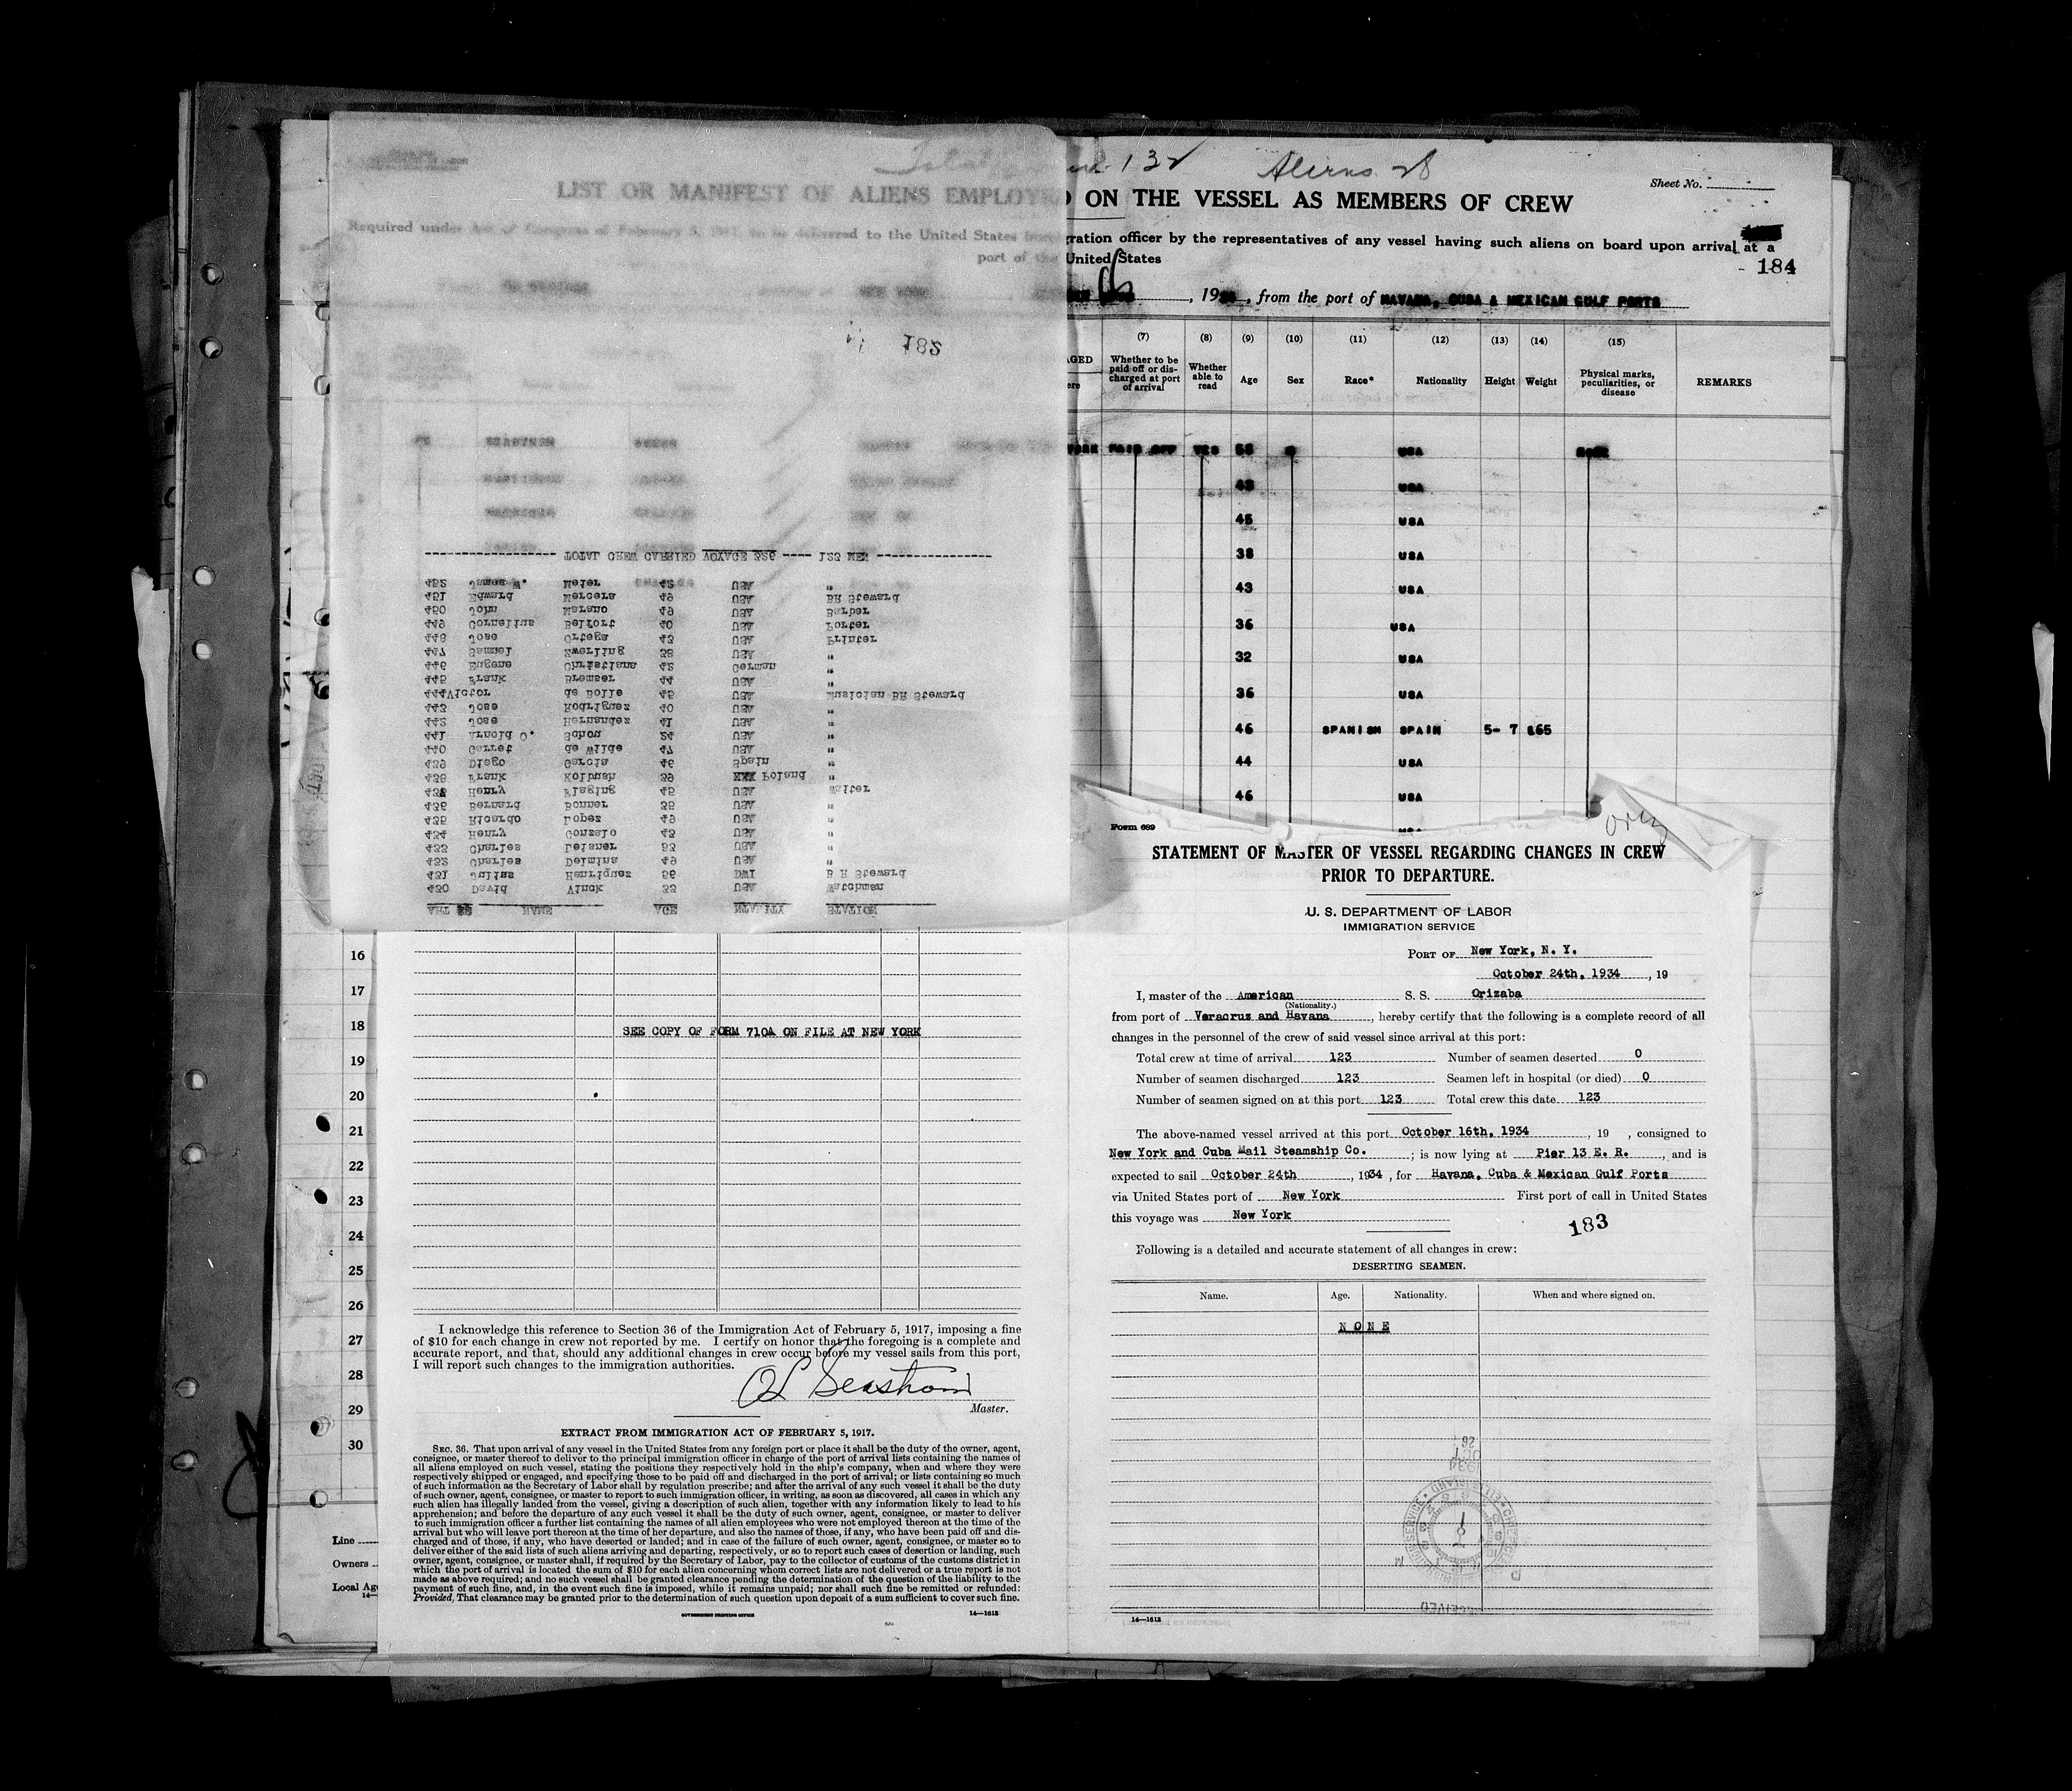 Aliens 28
Sheet No.
LIST OR MANIFEST OF ALIENS EMPLOYED ON THE VESSEL AS MEMBERS OF CREW
Required under Act of Congress of February 5, 1917, to be delivered to the United States immigration officer by the representatives of any vessel having such aliens on board upon arrival at a
port of the United States
184
, 19 , from the port of HAVANA, CUBA & MEXICAN GULF PORTS
182
(7) (8) (9) (10) (11) (12) (13) (14) (15)
Whether to be paid off or discharged at port of arrival Whether able to read Age Sex Race* Nationality Height Weight Physical marks, peculiarities, or disease REMARKS
YORK PAID OFF YES 58 USA NONE
43 USA
45 USA
38 USA
43 USA
36 USA
32 USA
36 USA
46 SPANISH SPAIN 5- 7 165
44 USA
46 USA
USA
NAME AGE NTALITY STATION
430 David Vinck 33 USA Watchman
431 Julius Henriquez 36 DWI B R Steward
432 Charles Delmius 49 USA "
433 Charles Leisner 53 USA "
434 Henry Gonzalo 43 USA "
435 Ricardo Lopez 49 USA "
436 Bernard Bonner 35 USA "
437 Henry Flaging 45 USA Waiter
438 Frank Kolbush 39 XXX Poland "
439 Diego Garcia 46 Spain "
440 Garret de Wilde 47 USA "
441 Arnold O. Schon 24 USA "
442 Jose Hernandez 41 USA "
443 Jose Rodriguez 40 USA "
444 Victor de Bolle 45 USA Musician BR Steward
445 Frank Bremser 44 USA "
446 Eugene Christians 42 German "
447 Samuel Zwerling 38 USA "
448 Jose Ortega 43 USA Printer
449 Cornelius Belfort 40 USA Porter
450 John Marano 49 USA Barber
451 Edward Mercera 49 USA BR Steward
452 James W. Meter 42 USA "
TOTAL CREW CARRIED VOYAGE 326 ---- 123 MEN
16
17
18
19
20
21
22
23
24
25
26
27
28
29
30
Line
Owners
Local Ag
SEE COPY OF FORM 710A ON FILE AT NEW YORK
I acknowledge this reference to Section 36 of the Immigration Act of February 5, 1917, imposing a fine
of $10 for each change in crew not reported by me. I certify on honor that the foregoing is a complete and
accurate report, and that, should any additional changes in crew occur before my vessel sails from this port,
I will report such changes to the immigration authorities.
OL Seastrom
Master.
EXTRACT FROM IMMIGRATION ACT OF FEBRUARY 5, 1917.
SEC. 36. That upon arrival of any vessel in the United States from any foreign port or place it shall be the duty of the owner, agent,
consignee, or master thereof to deliver to the principal immigration officer in charge of the port of arrival lists containing the names of
all aliens employed on such vessel, stating the positions they respectively hold in the ship's company, when and where they were
respectively shipped or engaged, and specifying those to be paid off and discharged in the port of arrival; or lists containing so much
of such information as the Secretary of Labor shall by regulation prescribe; and after the arrival of any such vessel it shall be the duty
of such owner, agent, consignee, or master to report to such immigration officer, in writing, as soon as discovered, all cases in which any
such alien has illegally landed from the vessel, giving a description of such alien, together with any information likely to lead to his
apprehension; and before the departure of any such vessel it shall be the duty of such owner, agent, consignee, or master to deliver
to such immigration officer a further list containing the names of all alien employees who were not employed thereon at the time of the
arrival but who will leave port thereon at the time of her departure, and also the names of those, if any, who have been paid off and dis-
charged and of those, if any, who have deserted or landed; and in case of the failure of such owner, agent, consignee, or master so to
deliver either of the said lists of such aliens arriving and departing, respectively, or so to report such cases of desertion or landing, such
owner, agent, consignee, or master shall, if required by the Secretary of Labor, pay to the collector of customs of the customs district in
which the port of arrival is located the sum of $10 for each alien concerning whom correct lists are not delivered or a true report is not
made as above required; and no such vessel shall be granted clearance pending the determination of the question of the liability to the
payment of such fine, and, in the event such fine is imposed, while it remains unpaid; nor shall such fine be remitted or refunded:
Provided, That clearance may be granted prior to the determination of such question upon deposit of a sum sufficient to cover such fine.
GOVERNMENT PRINTING OFFICE 14—1613
Form 689
STATEMENT OF MASTER OF VESSEL REGARDING CHANGES IN CREW
PRIOR TO DEPARTURE.
U. S. DEPARTMENT OF LABOR
IMMIGRATION SERVICE
PORT OF New York, N. Y.
October 24th, 1934 , 19
I, master of the American S. S. Orizaba
(Nationality.)
from port of Veracruz and Havana , hereby certify that the following is a complete record of all
changes in the personnel of the crew of said vessel since arrival at this port:
Total crew at time of arrival 123 Number of seamen deserted 0
Number of seamen discharged 123 Seamen left in hospital (or died) 0
Number of seamen signed on at this port 123 Total crew this date 123
The above-named vessel arrived at this port October 16th, 1934 , 19 , consigned to
New York and Cuba Mail Steamship Co. ; is now lying at Pier 13 E. R. , and is
expected to sail October 24th , 1934 , for Havana, Cuba & Mexican Gulf Ports
via United States port of New York First port of call in United States
this voyage was New York
183
Following is a detailed and accurate statement of all changes in crew:
DESERTING SEAMEN.
Name. Age. Nationality. When and where signed on.
NONE
14—1613